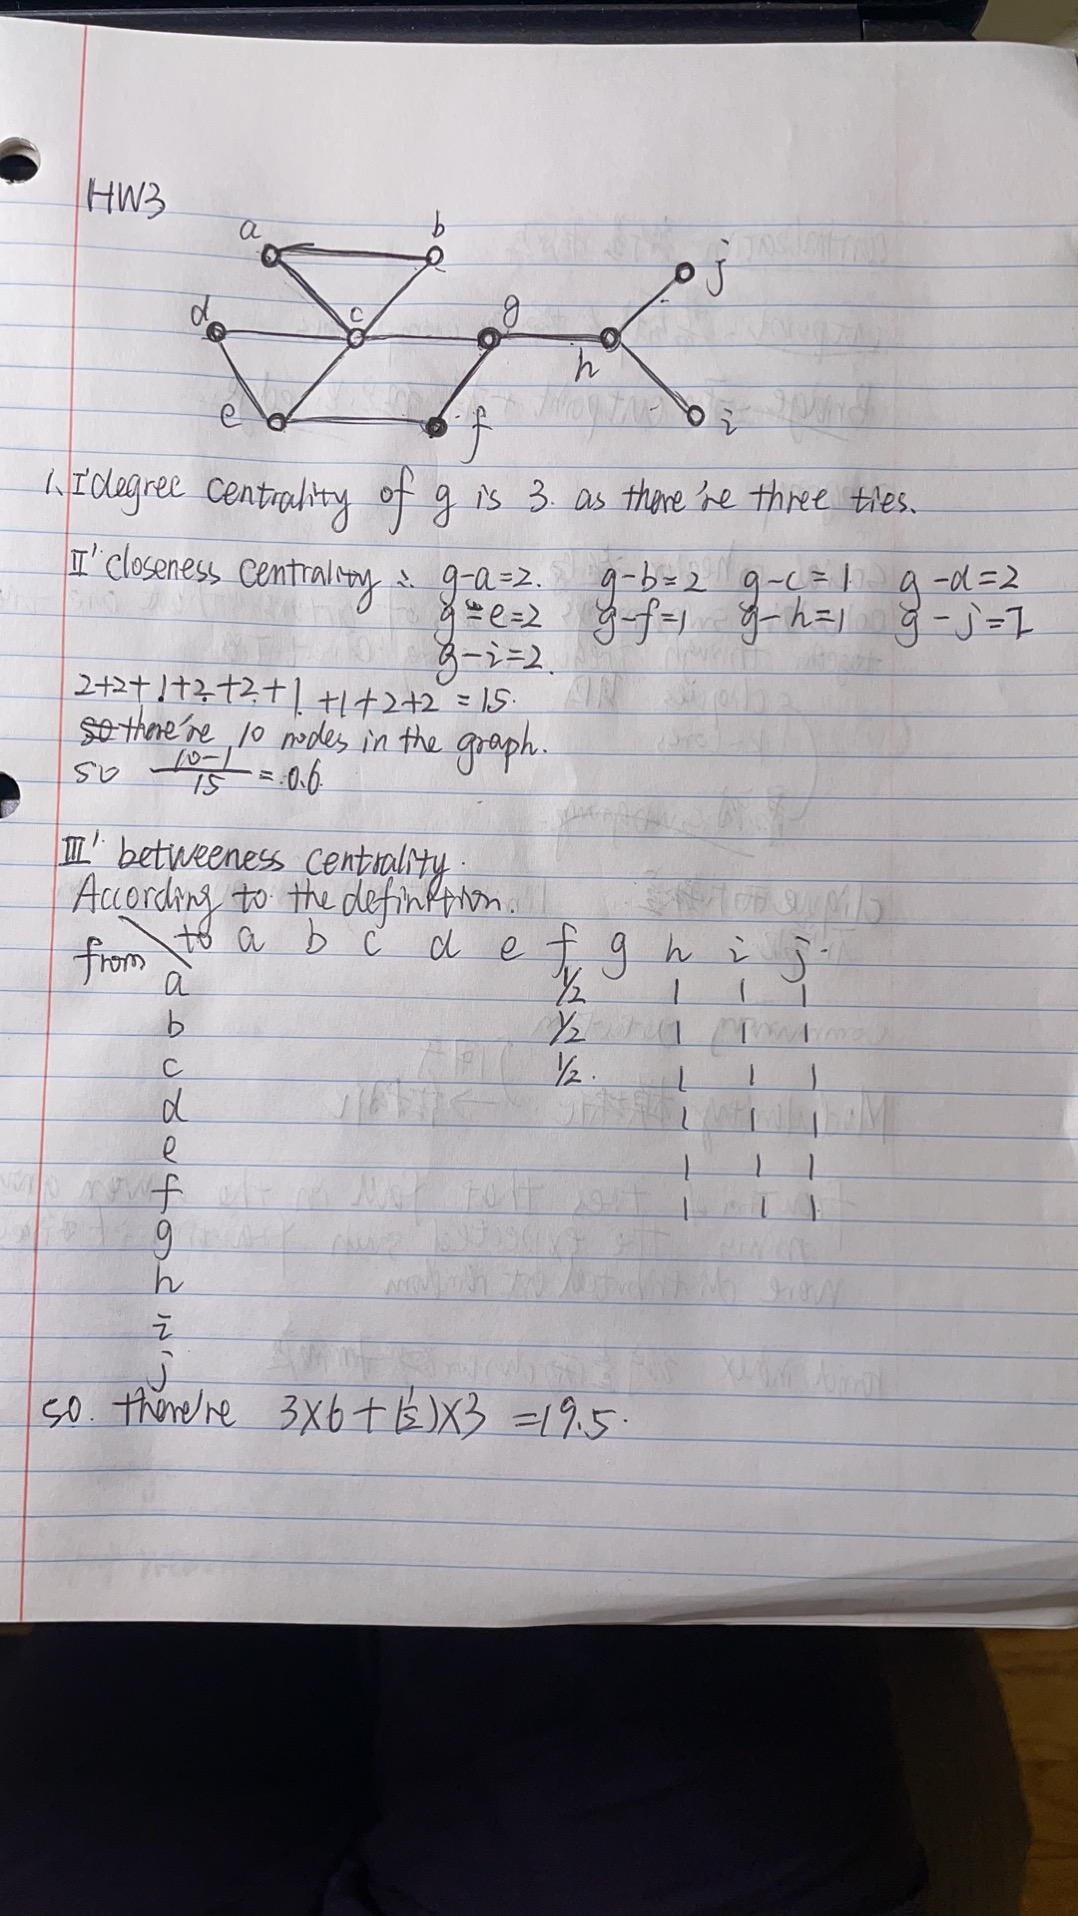 HW3
a b
j
d c g
h
e f i
1. I' degree centrality of g is 3. as there're three ties.
II' closeness centrality : g-a=2. g-b=2 g-c=1 g-d=2
g-e=2 g-f=1 g-h=1 g-j=2
g-i=2.
2+2+1+2+2+1+1+2+2=15.
so there're 10 nodes in the graph.
so 10-1/15 = 0.6
III' betweeness centrality.
According to the definition.
from to a b c d e f g h i j.
a 1/2 1 1 1
b 1/2 1 1 1
c 1/2. 1 1 1
d 1 1 1
e 1 1 1
f 1 1 1
g
h
i
j
so. there're 3×6+(1/2)×3=19.5.